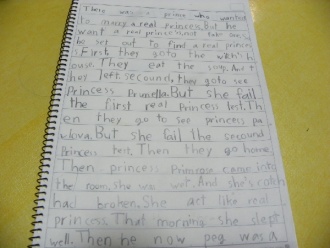 There was a prince who wanted
to marry a real princess. But he
want a real princess not fake one.
he set out to find a real princess
First, they goto the witch's
house. They eat the And t
hey left. secound, they goto see
Princess Prunella. But she fail
the first real princess test. Th
en they go to see princess pa
vlova. But she fail the secound
Princess test. Then they go home.
Then princess Primrose came into
the room, she was wet. And she's
had broken. She act like real
princess. That morning she slept
well. Then he now peg was a